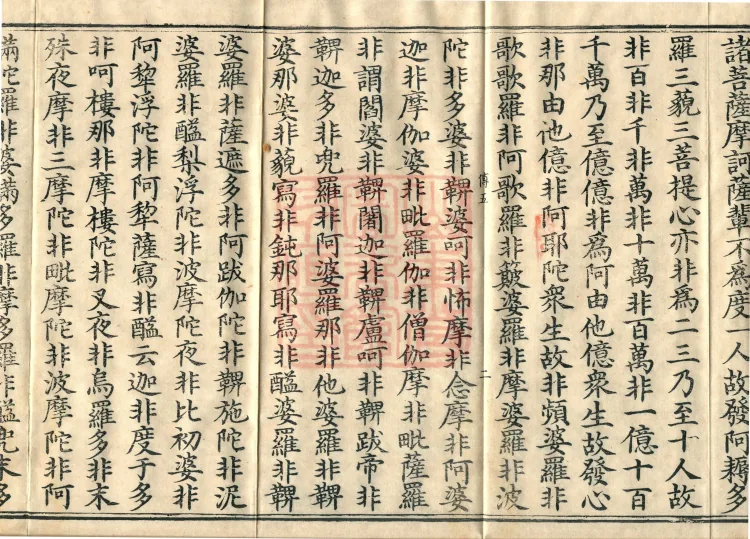 諸菩薩摩訶薩輩不為度一人故發阿耨多
羅三藐三菩提心亦非為二三乃至十人故
非百非千非萬非十萬非百萬非一億十百
千萬乃至億億非為阿由他億衆生故發心
非那由他億非阿耶陀衆生故非頻婆羅非
歌歌羅非阿歌羅非簸婆羅非摩婆羅非波
傅五 二
陀非多婆非鞞婆呵非怖摩非念摩非阿婆
迦非摩伽婆非毗羅伽非僧伽摩非毗薩羅
非謂閻婆非鞞闍迦非鞞盧呵非鞞跋帝非
鞞迦多非兜羅非阿婆羅那非他婆羅非鞞
婆那婆非藐寫非鈍那耶寫非醯婆羅非鞞
婆羅非薩遮多非阿跋伽陀非鞞施陀非泥
婆羅非醯梨浮陀非波摩陀夜非比初婆非
阿犂浮陀非阿犂薩寫非醯云迦非度于多
非呵樓那非摩樓陀非叉夜非烏羅多非末
殊夜摩非三摩陀非毗摩陀非波摩陀非阿
滿陀羅非婆滿多羅非摩多羅非醯兜末多